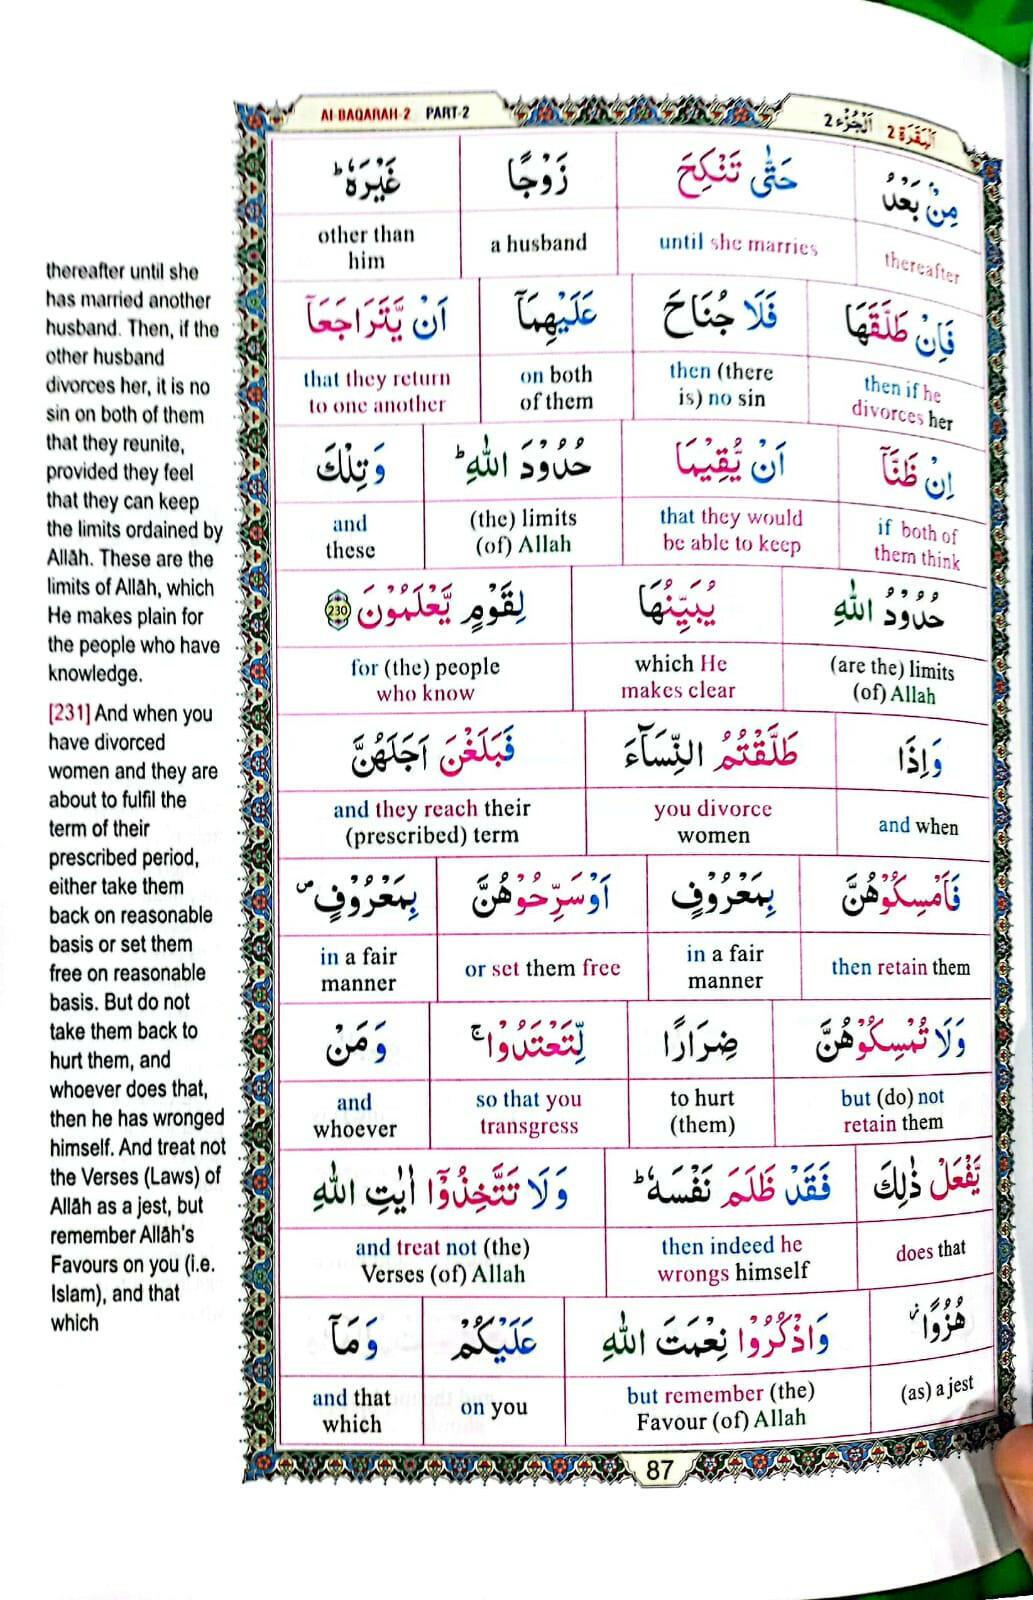 Al-BAQARAH-2 PART-2
اَلْبَقَرَة 2 اَلْجُزْء 2
مِنْۢ بَعْدُ حَتّٰى تَنْكِحَ زَوْجًا غَيْرَهٗ ؕ
thereafter until she marries a husband other than
him
فَاِنْ طَلَّقَهَا فَلَا جُنَاحَ عَلَيْهِمَاۤ اَنْ يَّتَرَاجَعَاۤ
then if he then (there on both that they return
divorces her is) no sin of them to one another
اِنْ ظَنَّاۤ اَنْ يُّقِيْمَا حُدُوْدَ اللّٰهِ ؕ وَتِلْكَ
if both of that they would (the) limits and
them think be able to keep (of) Allah these
حُدُوْدُ اللّٰهِ يُبَيِّنُهَا لِقَوْمٍ يَّعْلَمُوْنَ 230
(are the) limits which He for (the) people
(of) Allah makes clear who know
وَاِذَا طَلَّقْتُمُ النِّسَآءَ فَبَلَغْنَ اَجَلَهُنَّ
and when you divorce and they reach their
women (prescribed) term
فَاَمْسِكُوْهُنَّ بِمَعْرُوْفٍ اَوْ سَرِّحُوْهُنَّ بِمَعْرُوْفٍ ۪
then retain them in a fair or set them free in a fair
manner manner
وَلَا تُمْسِكُوْهُنَّ ضِرَارًا لِّتَعْتَدُوْا ۚ وَمَنْ
but (do) not to hurt so that you and
retain them (them) transgress whoever
يَّفْعَلْ ذٰلِكَ فَقَدْ ظَلَمَ نَفْسَهٗ ؕ وَلَا تَتَّخِذُوْۤا اٰيٰتِ اللّٰهِ
does that then indeed he and treat not (the)
wrongs himself Verses (of) Allah
هُزُوًا ؗ وَّاذْكُرُوْا نِعْمَتَ اللّٰهِ عَلَيْكُمْ وَمَاۤ
(as) a jest but remember (the) on you and that
Favour (of) Allah which
87
thereafter until she
has married another
husband. Then, if the
other husband
divorces her, it is no
sin on both of them
that they reunite,
provided they feel
that they can keep
the limits ordained by
Allâh. These are the
limits of Allâh, which
He makes plain for
the people who have
knowledge.
[231] And when you
have divorced
women and they are
about to fulfil the
term of their
prescribed period,
either take them
back on reasonable
basis or set them
free on reasonable
basis. But do not
take them back to
hurt them, and
whoever does that,
then he has wronged
himself. And treat not
the Verses (Laws) of
Allâh as a jest, but
remember Allâh's
Favours on you (i.e.
Islam), and that
which